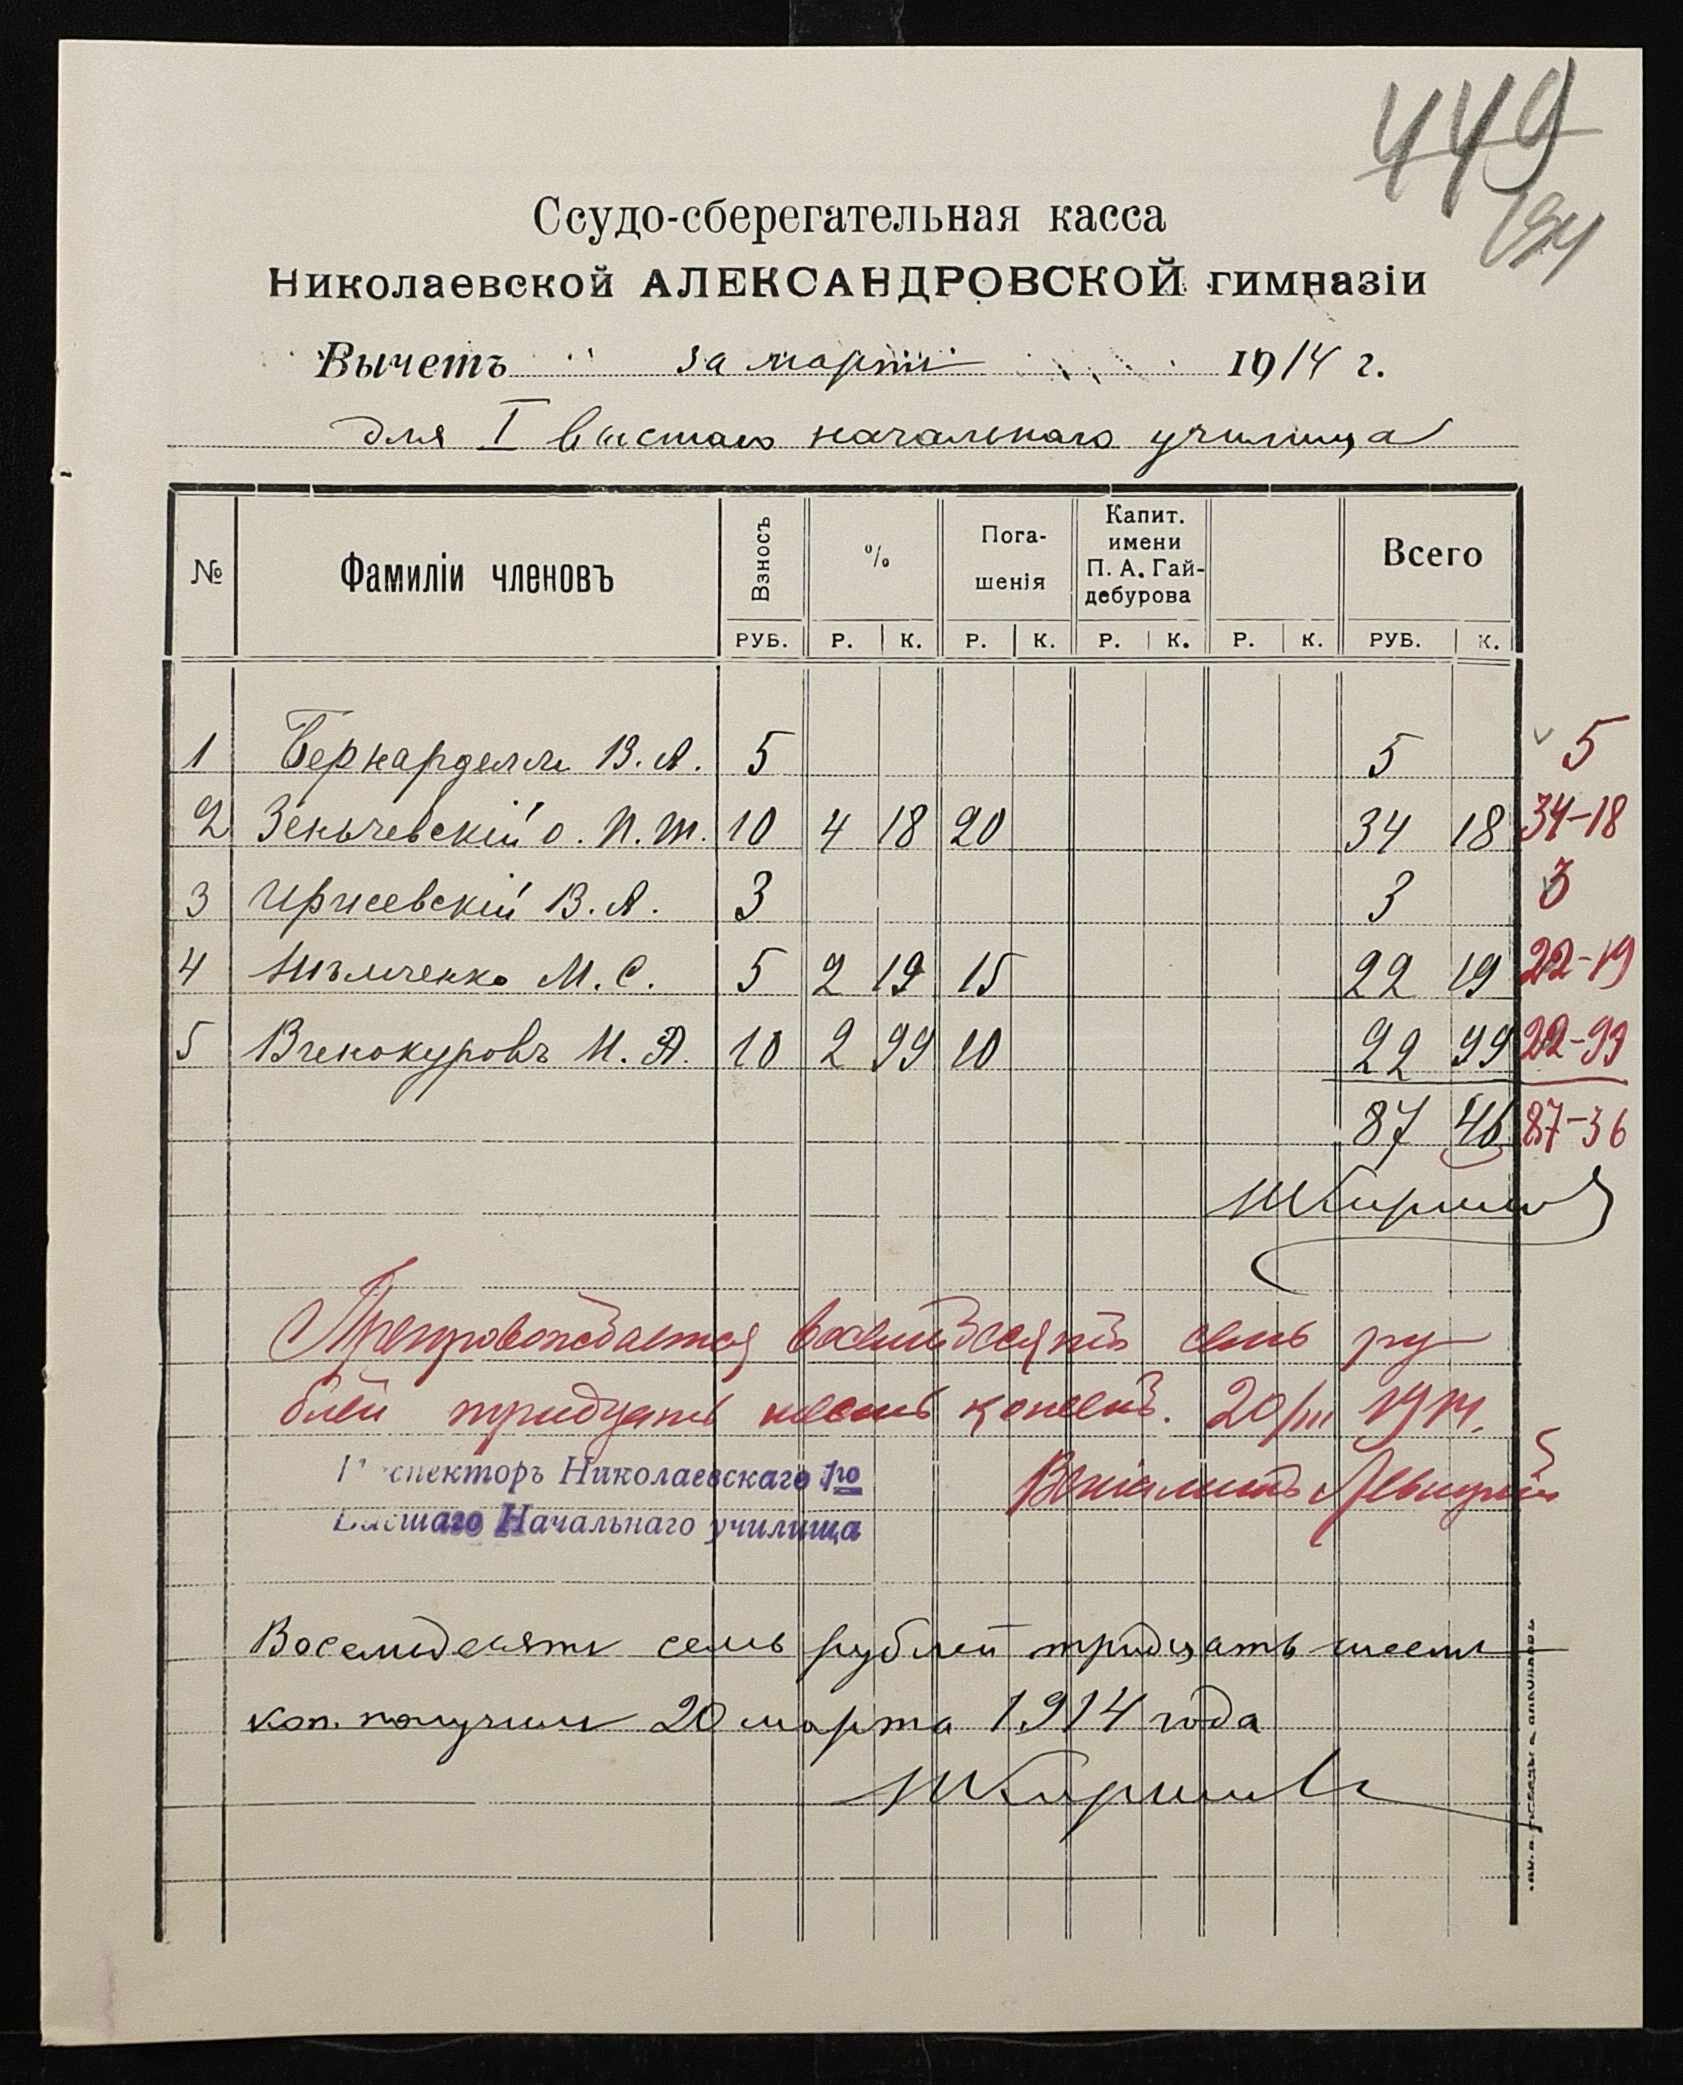 449
Ссудо-сберегательная касса
Николаевской АЛЕКСАНДРОВСКОЙ гимназіи
Вычетъ за мартъ 1914 г.
для I высшаго начальнаго училища
№ Фамиліи членовъ Взносъ % Пога-шенія Капит. имени П. А. Гай-дебурова Всего
РУБ. Р. К. Р. К. Р. К. Р. К. РУБ. К.
1 Бернарделли В. А. 5 5 5
2 Зеньчевскій о. П. Т. 10 4 18 20 34 18 34-18
3 В. А. 3 3 3
4 М. С. 5 2 19 15 22 19 22-19
5 Винокуровъ И. А. 10 2 99 10 22 99 22-99
87 46 87-36
Препровождается восемьдесятъ семь ру
блей тридцать шесть копеекъ. 20/III 1914.
Инспекторъ Николаевскаго 1го Веніаминъ Левицкій
Высшаго Начальнаго училища
Восемьдесятъ семь рублей тридцать шесть
коп. получилъ 20 марта 1914 года